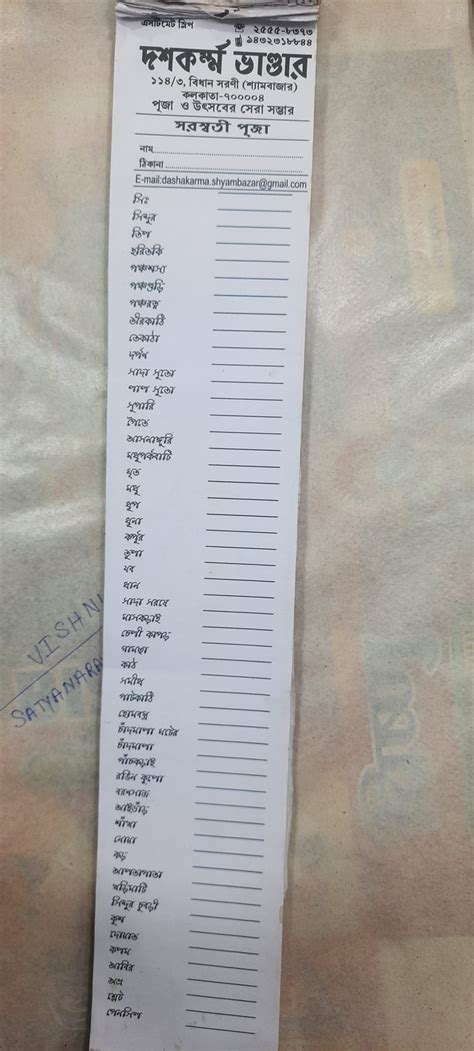 এসটিমেট স্লিপ
☎ ২৫৫৫-৮৩৭৩
৯৪৩২৩১৮৮৪৪
দশকর্ম্ম ভাণ্ডার
১১৪/৩, বিধান সরণী (শ্যামবাজার)
কলকাতা-৭০০০০৪
পূজা ও উৎসবের সেরা সম্ভার
সরস্বতী পূজা
নাম
ঠিকানা
E-mail:dashakarma.shyambazar@gmail.com
সিঃ
সিন্দুর
তিল
হরিতকি
পঞ্চশস্য
পঞ্চগুড়ি
পঞ্চরত্ন
তীরকাঠি
তেকাঠা
দর্পণ
সাদা সুতো
লাল সুতো
সুপারি
পৈতে
আসনাঙ্গুরি
মধুপর্কবাটি
ঘৃত
মধু
ধূপ
ধূনা
কর্পূর
তুলা
যব
ধান
সাদা সরষে
মাসকড়াই
চেলী কাপড়
গামছা
কাঠ
সমীধ
পাটকাঠি
হোমবস্ত্র
চাঁদমালা ঘটের
চাঁদমালা
পাঁচকড়াই
রঙিন কুলো
বরণসাজ
আইভাঁড়
শাঁখা
নোয়া
রুড়
আলতাপাতা
খড়িমাটি
সিন্দুর চুবড়ী
কুশ
দোয়াত
কলম
আবির
অভ্র
স্লেট
পেনসিল
VISHN
SATYANARA